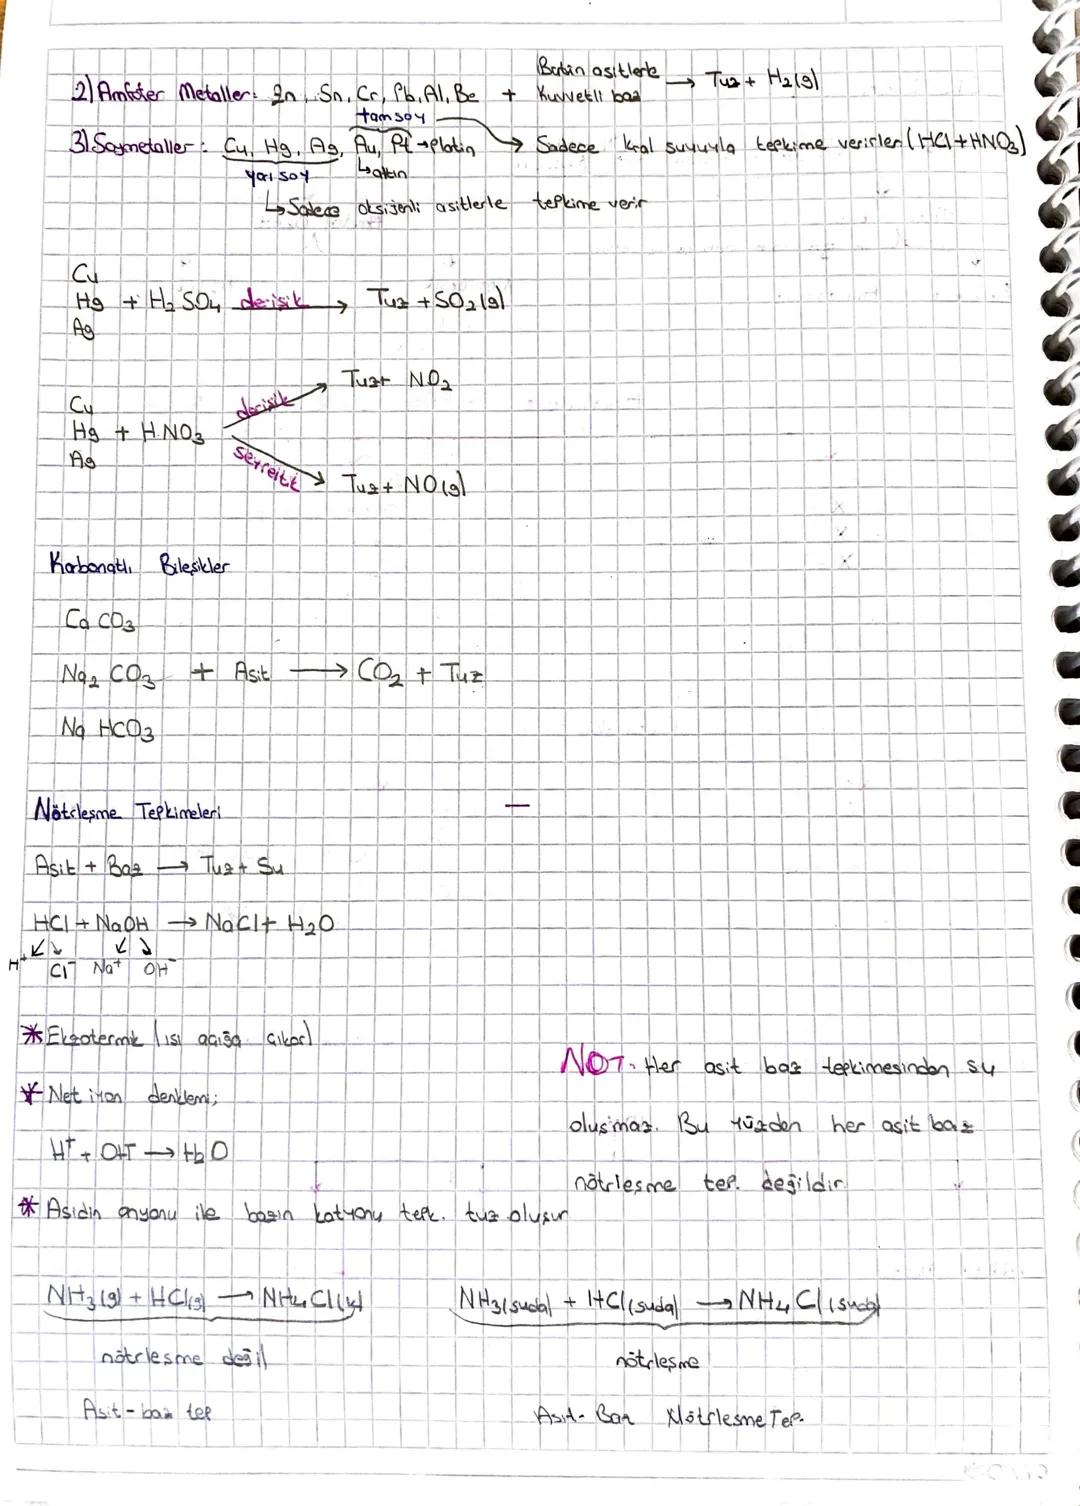 Bütün asitlerle
2) Amfoter Metaller: Zn, Sn, Cr, Pb, Al, Be + Kuvvetli baz → Tuz + H2(g)
tamsoy
3) Soymetaller: Cu, Hg, Ag, Au, Pt → Platin → Sadece kral suyuyla tepkime verirler (HCl + HNO3)
yarı soy ↳ altın
↳ Sadece oksijenli asitlerle tepkime verir
Cu
Hg + H2SO4 derişik → Tuz + SO2(g)
Ag
Tuz + NO2
derişik
Cu
Hg + HNO3
Ag
seyreltik
Tuz + NO(g)
Karbonatlı Bileşikler
CaCO3
Na2CO3 + Asit → CO2 + Tuz
NaHCO3
Nötrleşme Tepkimeleri
Asit + Baz → Tuz + Su
HCl + NaOH → NaCl + H2O
H+ Cl- Na+ OH-
* Ekzotermik (ısı açığa çıkar)
* Net iyon denklemi;
H+ + OH- → H2O
* Asidin anyonu ile bazın katyonu tepk. tuz oluşur
NOT: Her asit baz tepkimesinden su
oluşmaz. Bu yüzden her asit baz
nötrleşme tep. değildir.
NH3(g) + HCl(g) → NH4Cl(k)
nötrleşme değil
Asit-baz tep
NH3(suda) + HCl(suda) → NH4Cl(suda)
nötrleşme
Asit-Baz Nötrleşme Tep.